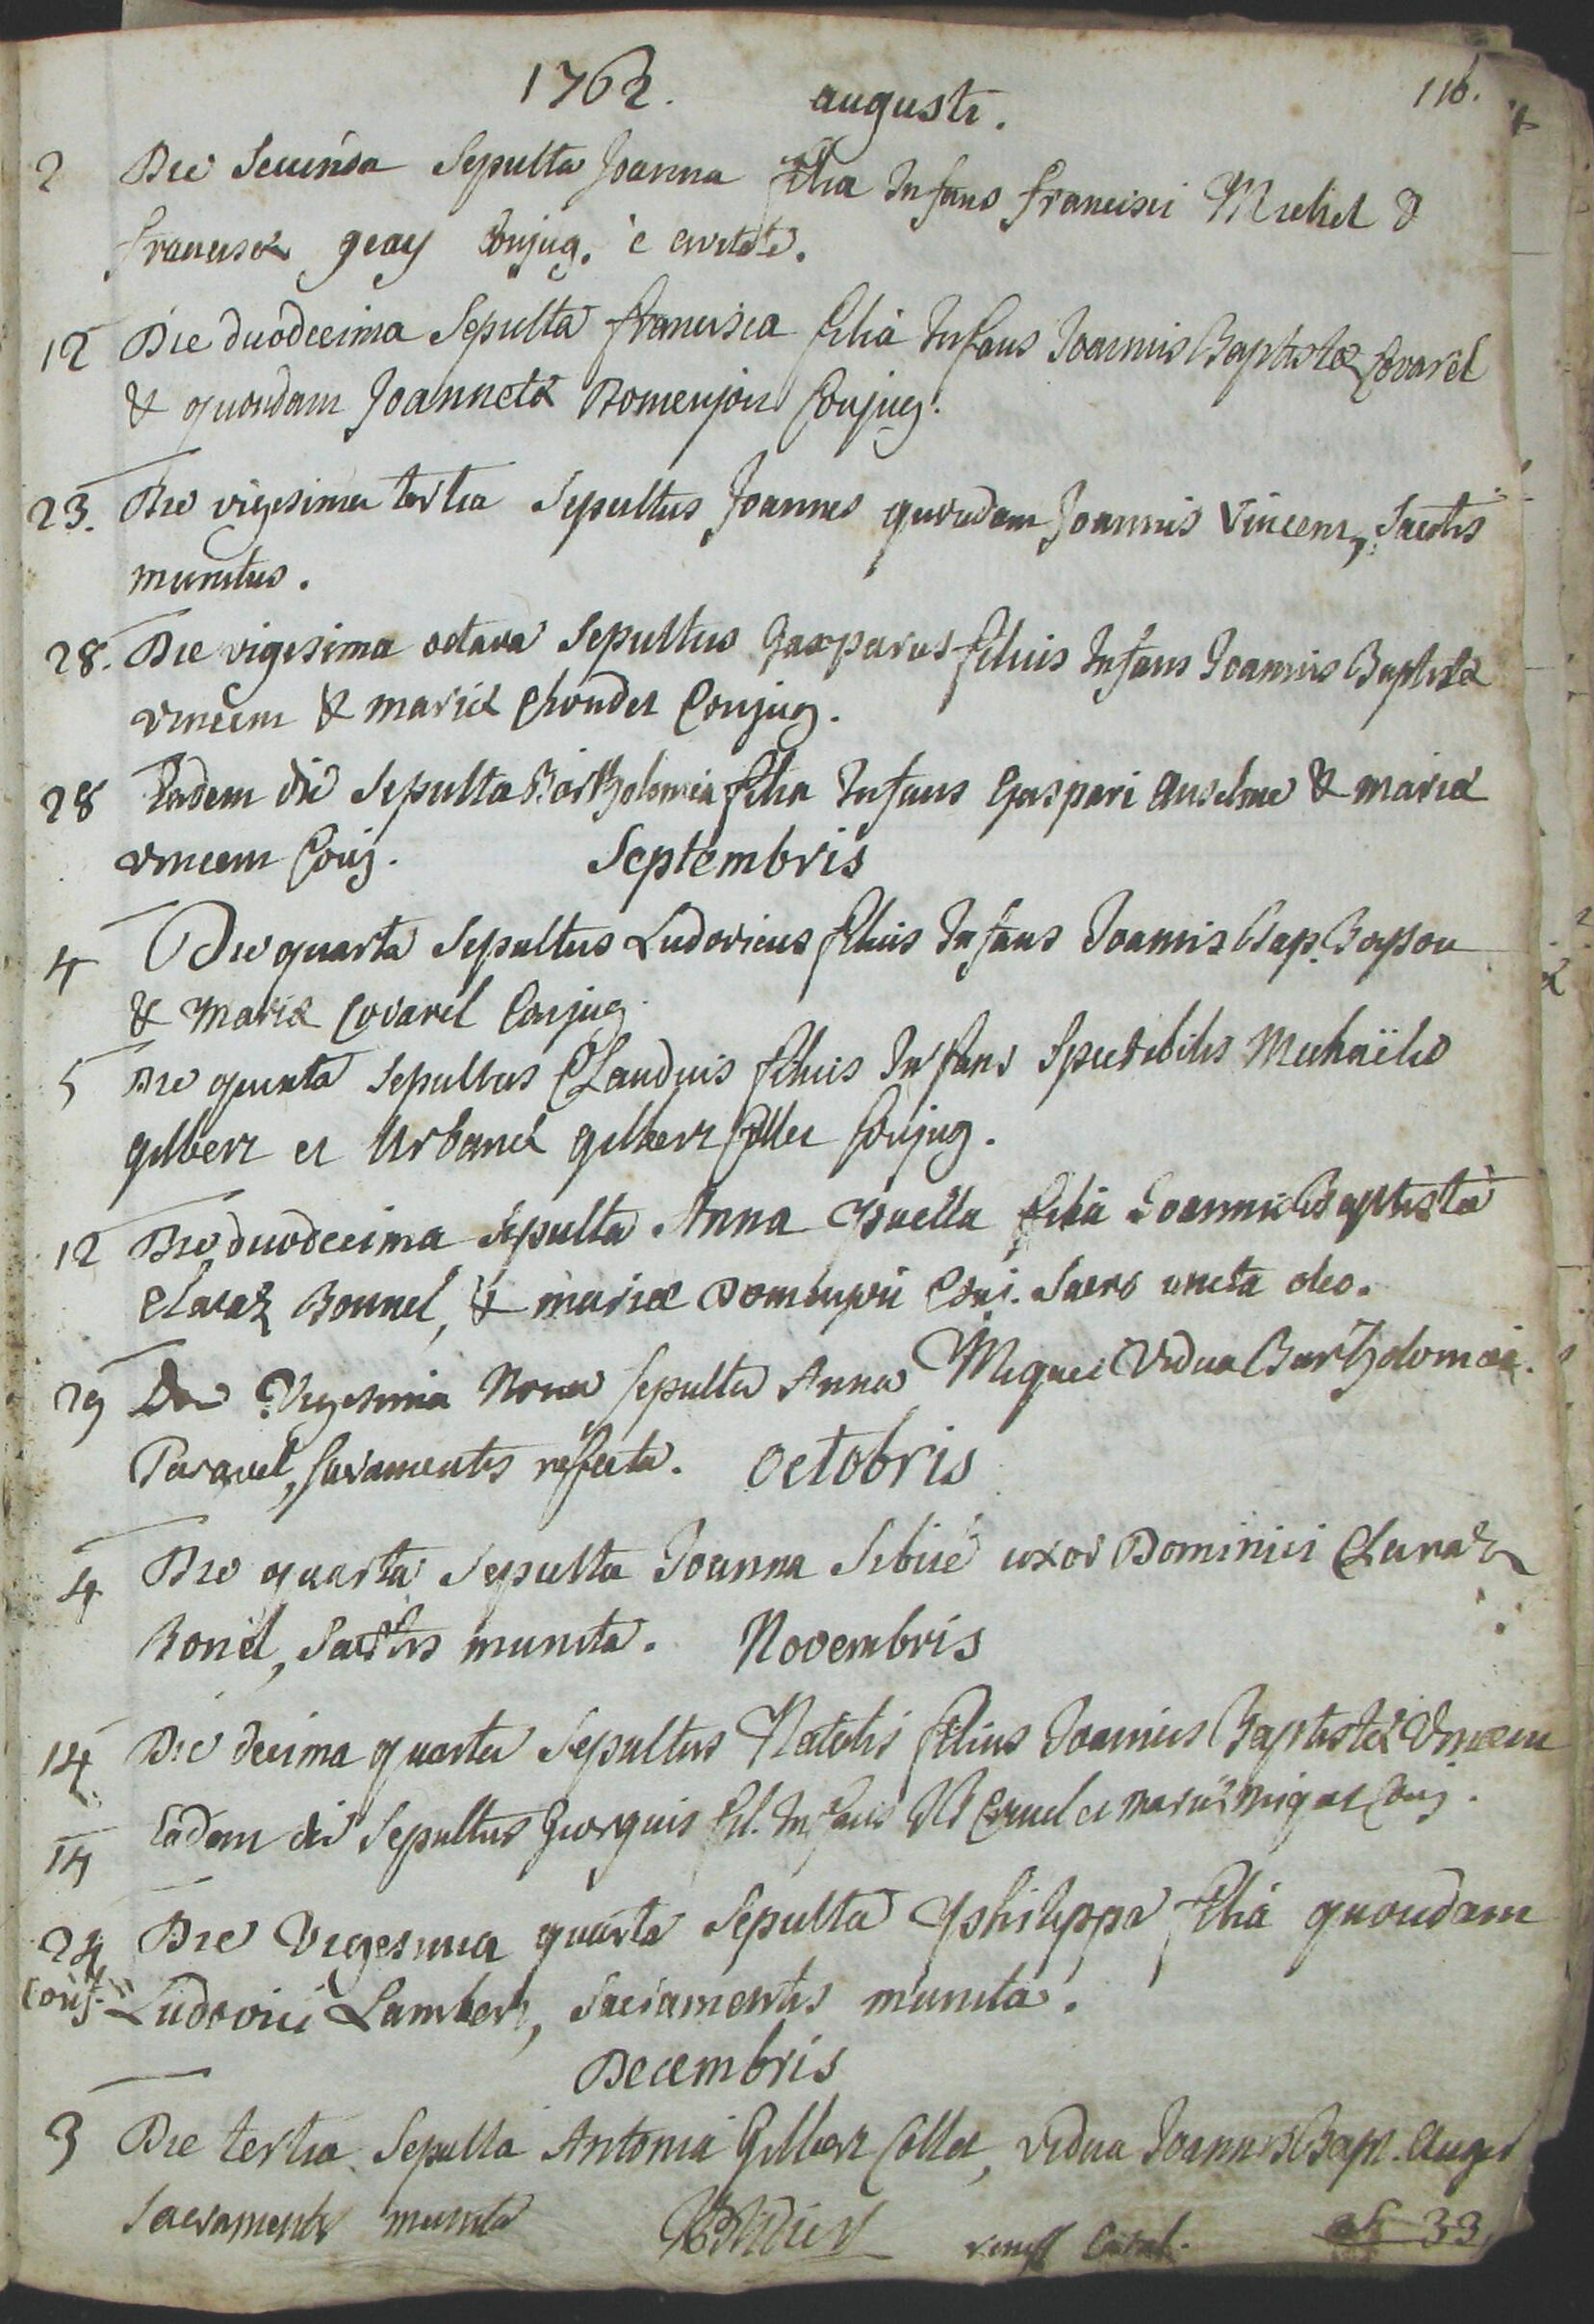 1762. augusti. 116.
2 Die Secunda Sepulta Joanna filia Infans francisci Michel &
franciscæ geay Conjug. è civitate.
12 Die duodecima Sepulta francisca filia Infans Joannis Baptistæ Covarel
& quondam Joannetæ Romenjon Conjug.
23. Die vigesima tertia Sepultus Joannes quondam Joannis Vincent, Sactis
munitus.
28. Die vigesima octava Sepultus Gasparus filius Infans Joannis Baptistæ
vincent & mariæ Chondet Conjug.
28 Eadem die Sepulta Bartholomea filia Infans Gaspari Anselme & mariæ
vincent Conj. Septembris
4 Die quarta Sepultus Ludovicus filius Infans Joannis Bap. Bapson
& Mariæ Covarel Conjug.
5 Die quinta Sepultus Claudius filius Infans Spectabilis Michaëlis
gilbert et Urbanæ gilbert Collet Conjug.
12 Die duodecima Sepulta Anna puella filia Joannis Baptistæ
Claraz Bonnel, & mariæ Conj. Sacro uncta oleo.
29 Die Vigesima Nona sepulta Anna Miquet Vidua Bartholomæi
Paravel, sacramentis refecta. octobris
4 Die quarta Sepulta Joanna Sibué uxor Dominici Claraz
Bonel, Sactis munita. Novembris
14 Die decima quarta Sepultus Natalis filius Joannis Baptistæ Vincent
14 Eadem die Sepultus Georgius fil. Infans et mariæ miquet Conj.
24 Die Vigesima quarta Sepulta philippa filia quondam
Conj. Ludovici Lambert, Sacramentis munita.
Decembris
3 Die tertia Sepulta Antonia Gilbert Collet, vidua Joannis Bapt. Auget
Sacramentis munita 33